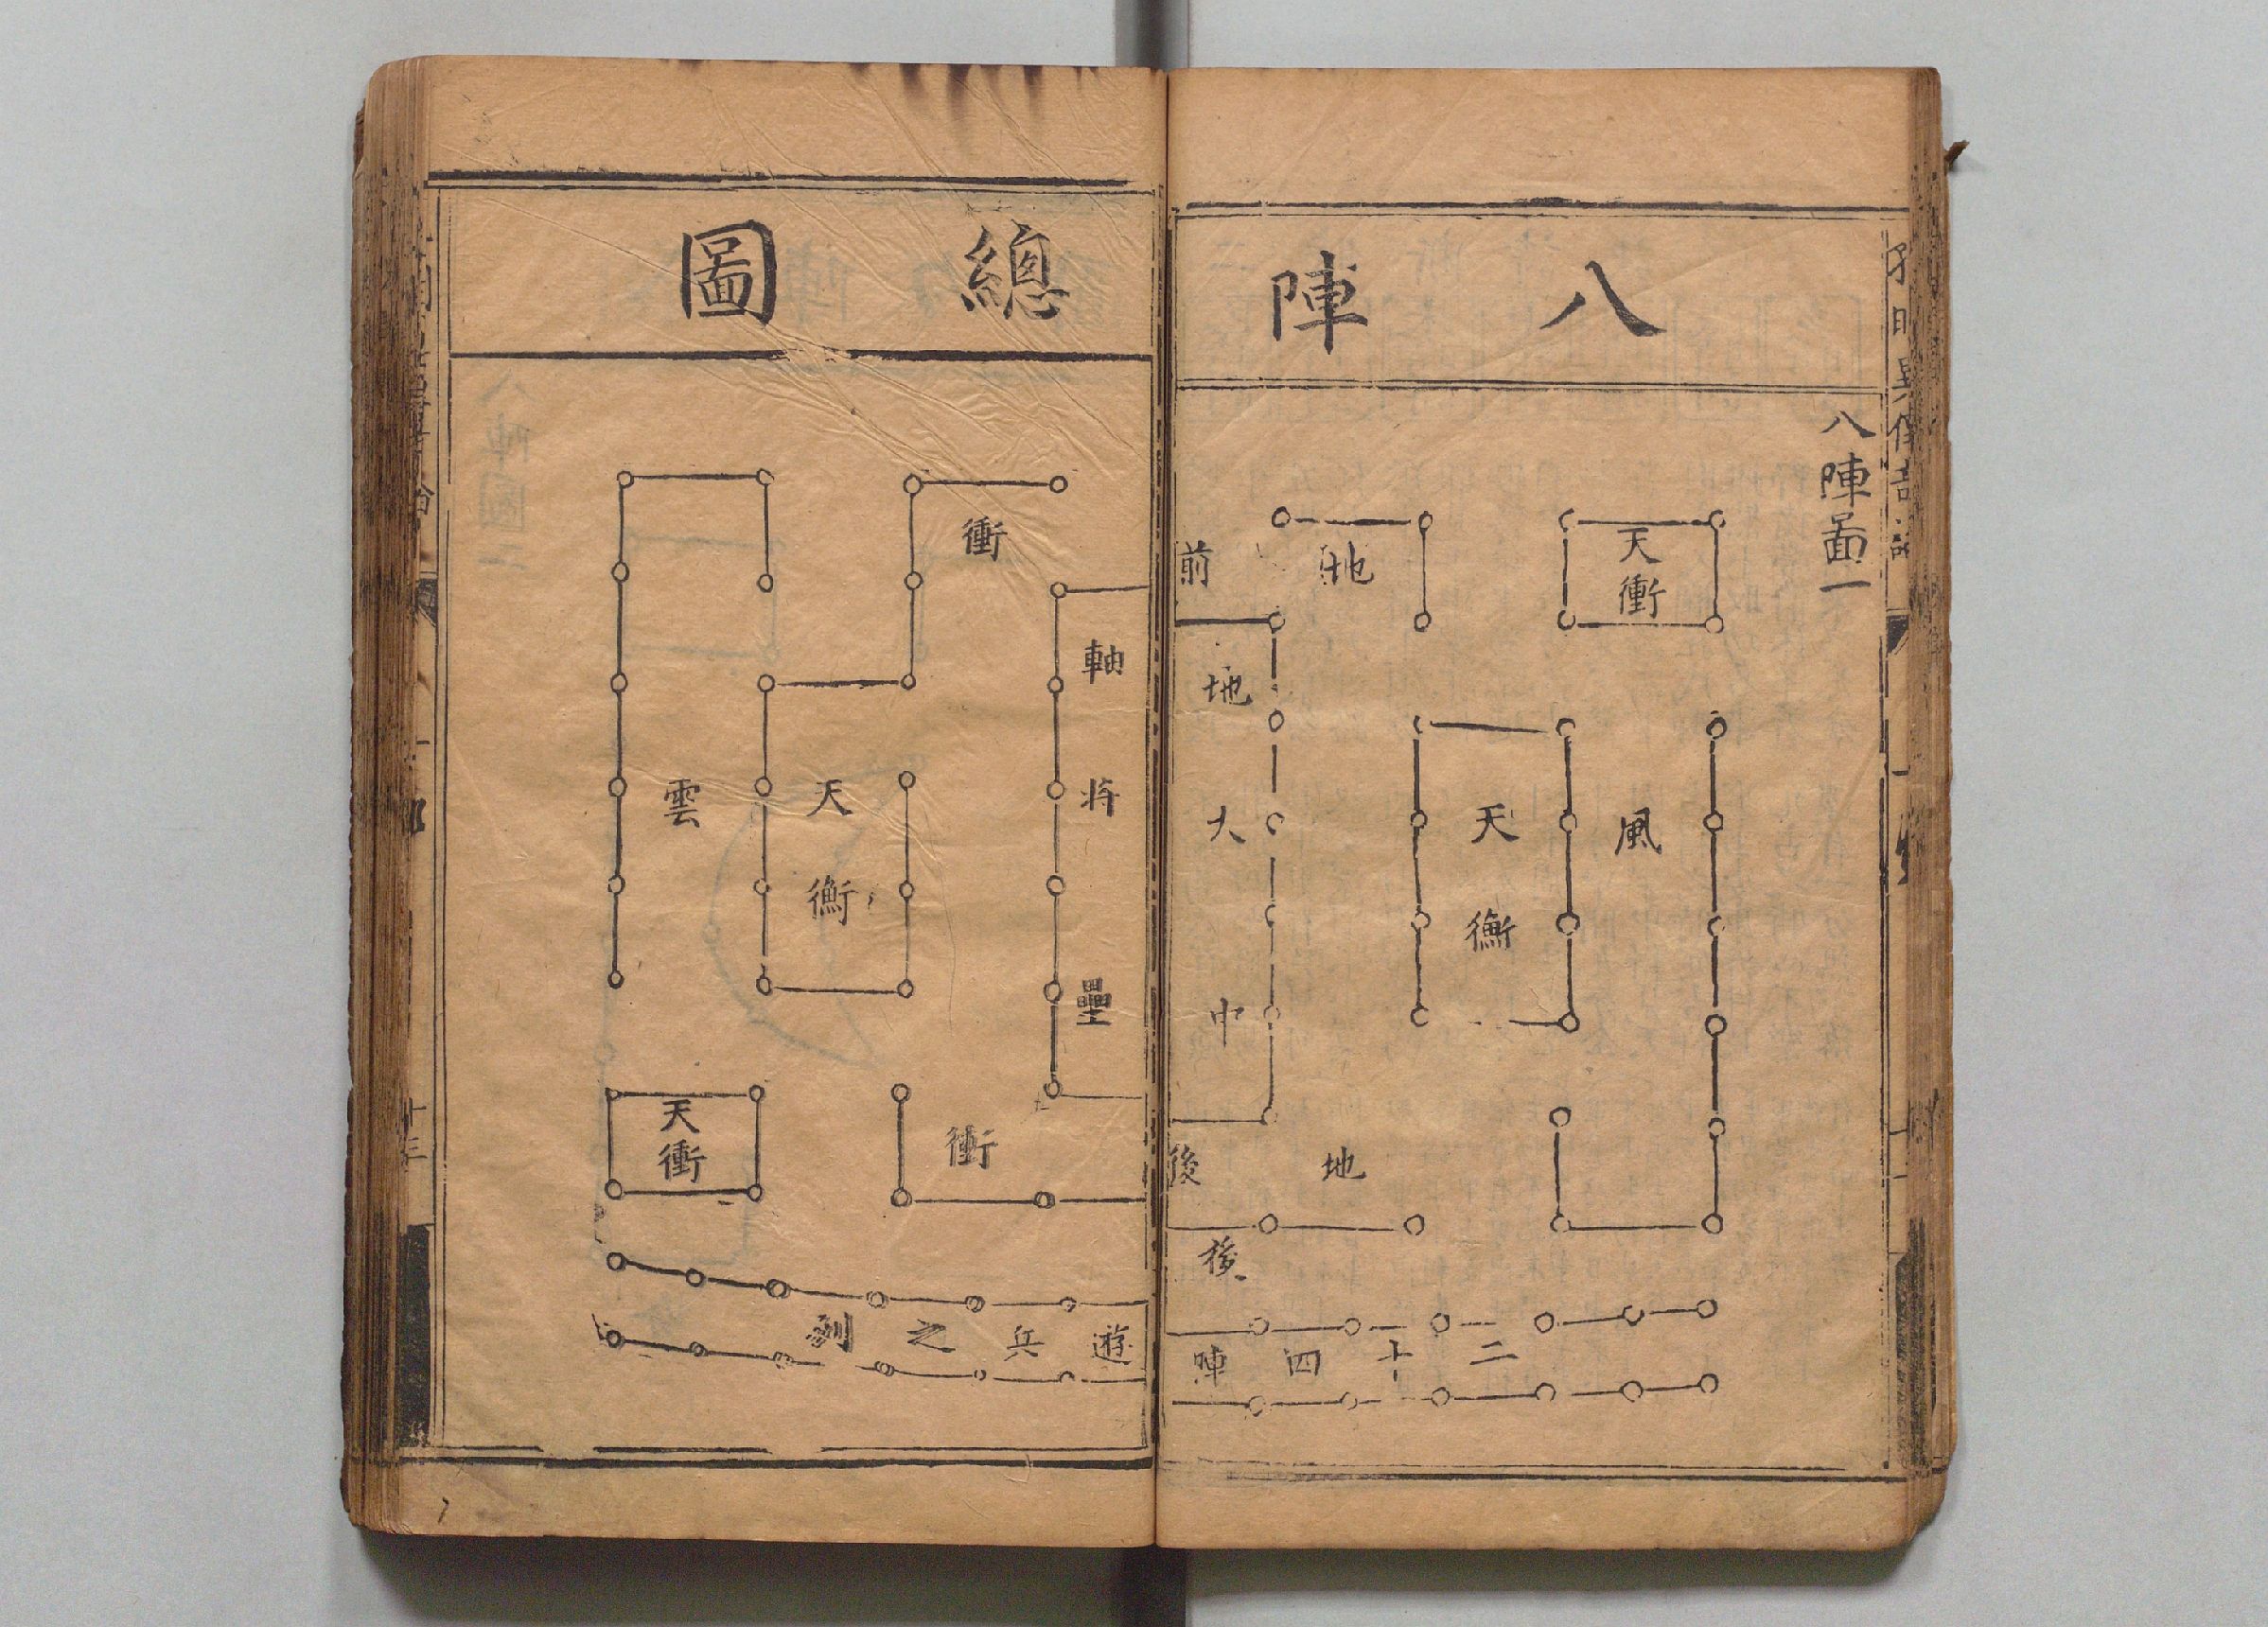 八陣總圖
八陣啚一
天衝
地前衝
天衡
風
地軸
大將
中壘
天衡
雲
地後衝
天衝
後
二十四陣遊兵之列